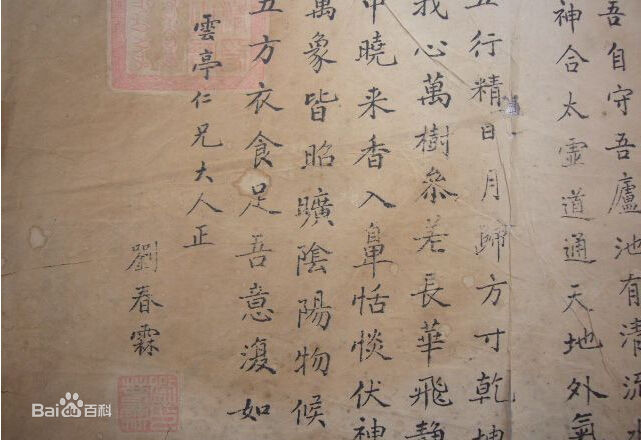 吾自守吾廬池有清流
神合太虛道通天地外氣
五行精日月歸方寸乾坤
我心萬樹參差長華飛靜
中曉来香入鼻恬惔伏神
萬象皆昭曠陰陽物候
五方衣食足吾意復如
雲亭仁兄大人正
劉春霖
Bai百科